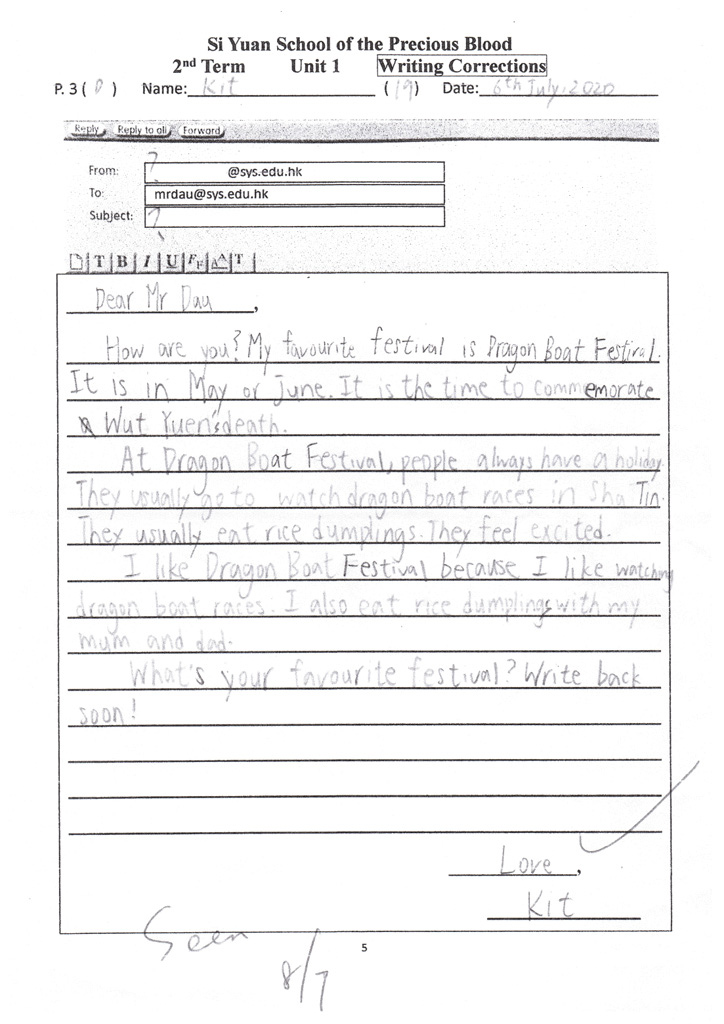 Si Yuan School of the Precious Blood
2nd Term Unit 1 Writing Corrections
P. 3 ( D ) Name: Kit (19) Date: 6th July, 2020
Reply Reply to all Forward
From: ? @sys.edu.hk
To: mrdau@sys.edu.hk
Subject: ?
T B I U T
Dear Mr Dau,
How are you? My favourite festival is Dragon Boat Festival.
It is in May or June. It is the time to commemorate
Wut Yuen's death.
At Dragon Boat Festival, people always have a holiday.
They usually go to watch dragon boat races in Sha Tin.
They usually eat rice dumplings. They feel excited.
I like Dragon Boat Festival because I like watching
dragon boat races. I also eat rice dumplings with my
mum and dad.
What's your favourite festival? Write back
soon!
Love,
Kit
Seen
8/7
5